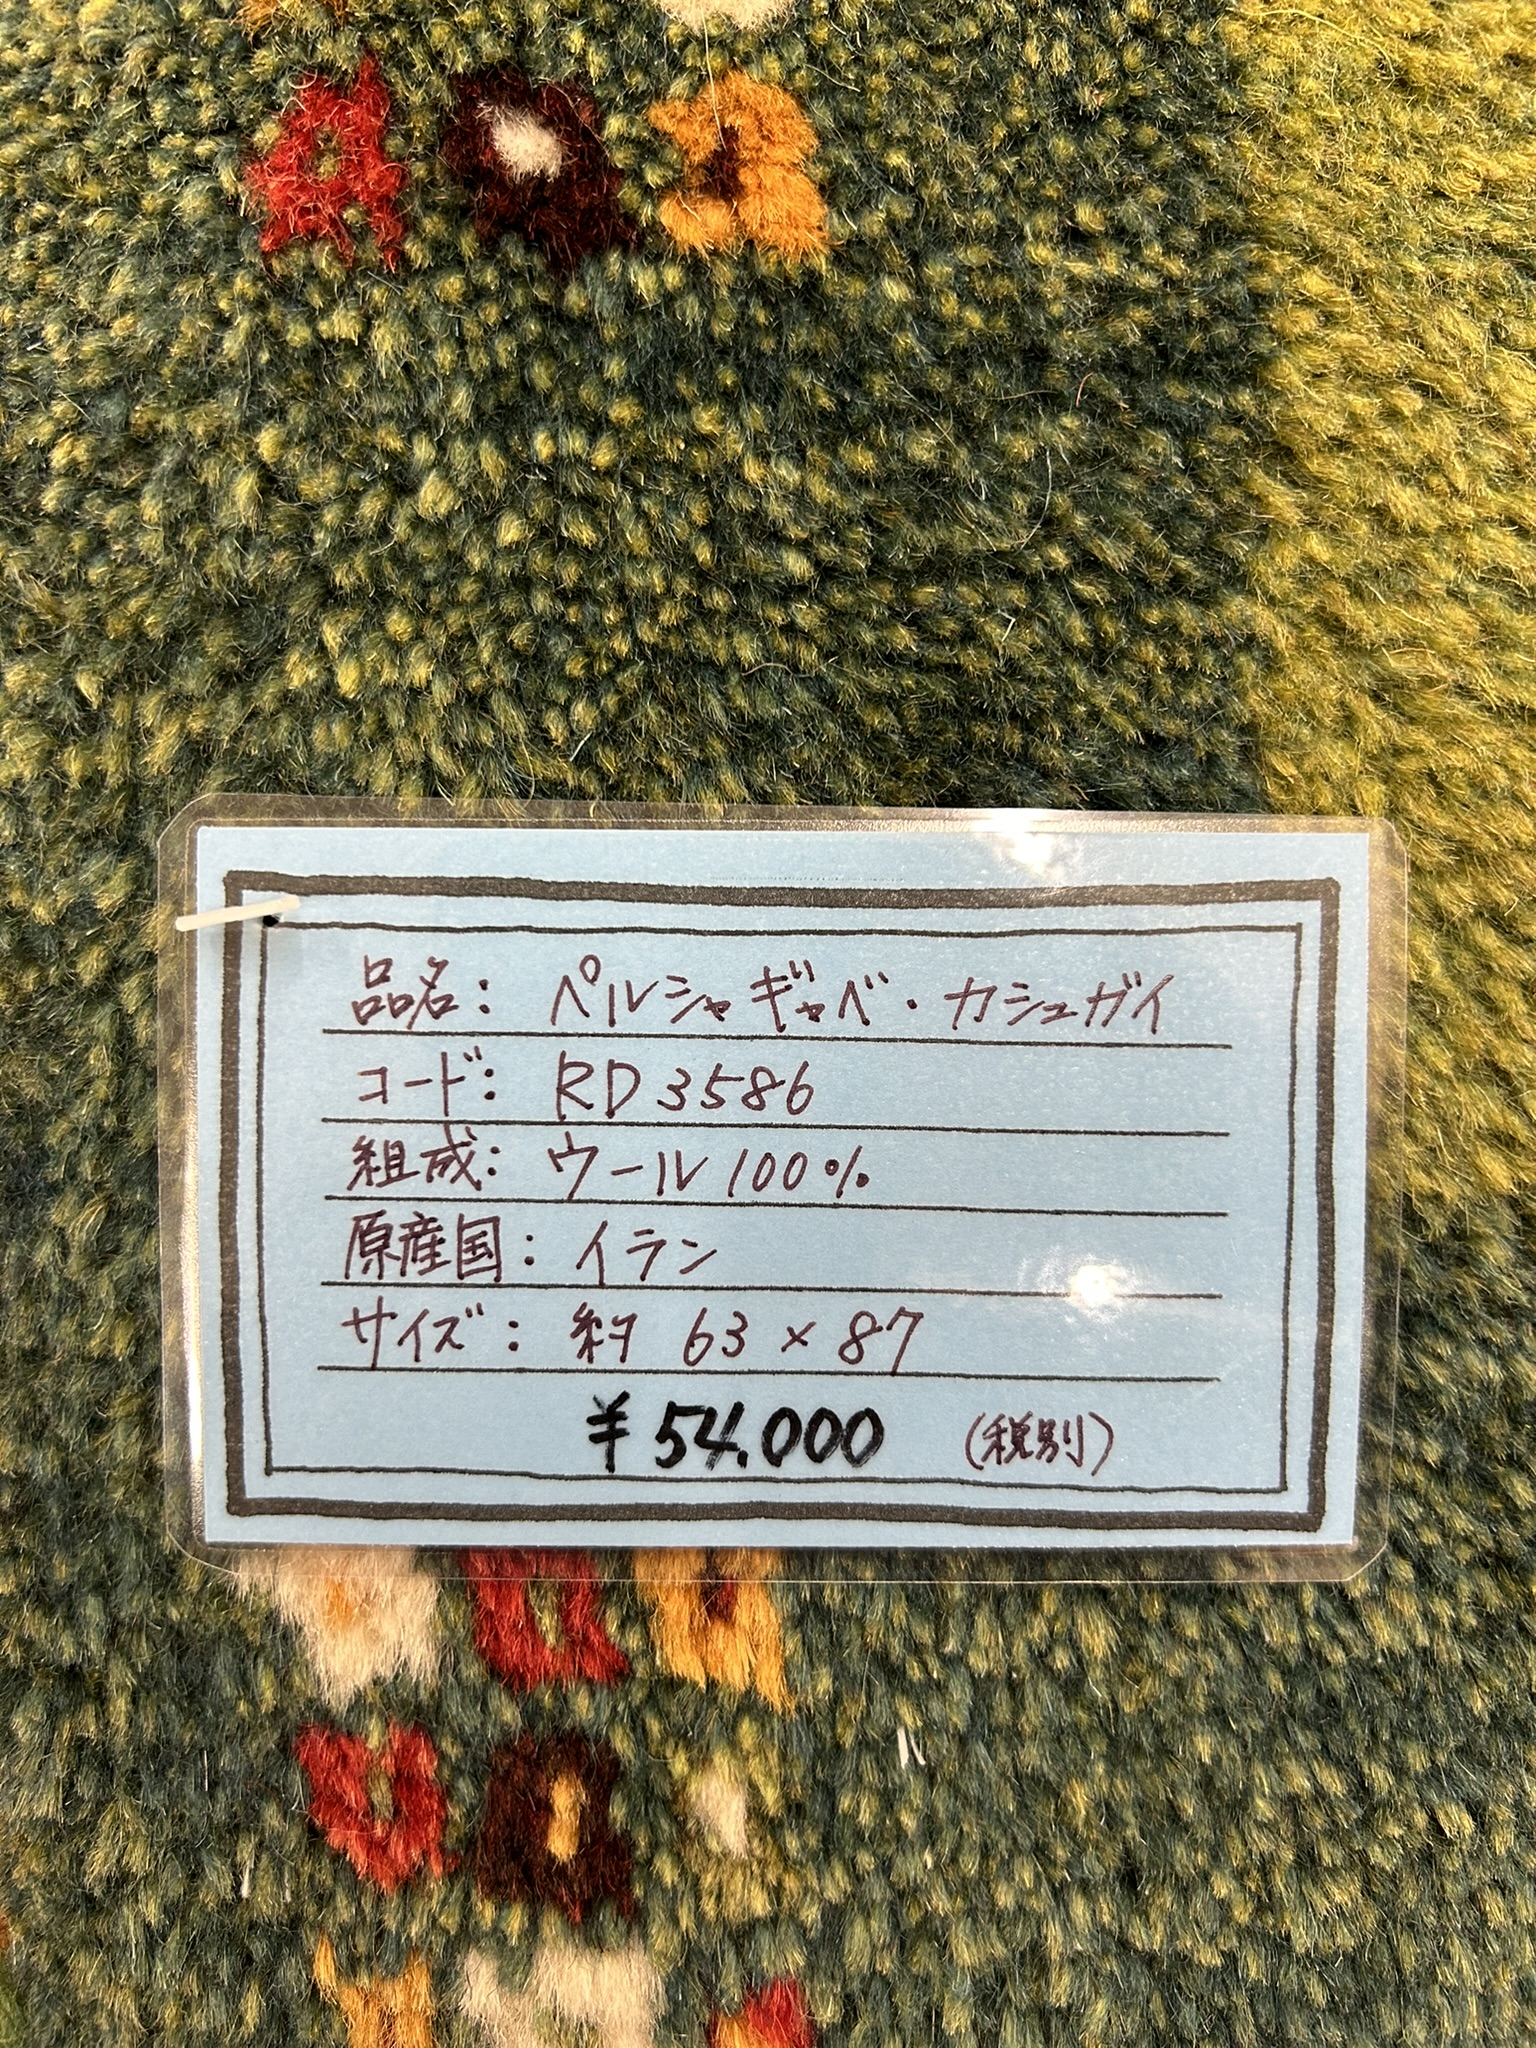 品名： ペルシャギャベ・カシュガイ
コード： RD3586
組成： ウール100%
原産国： イラン
サイズ： 約 63×87
¥54.000 (税別)